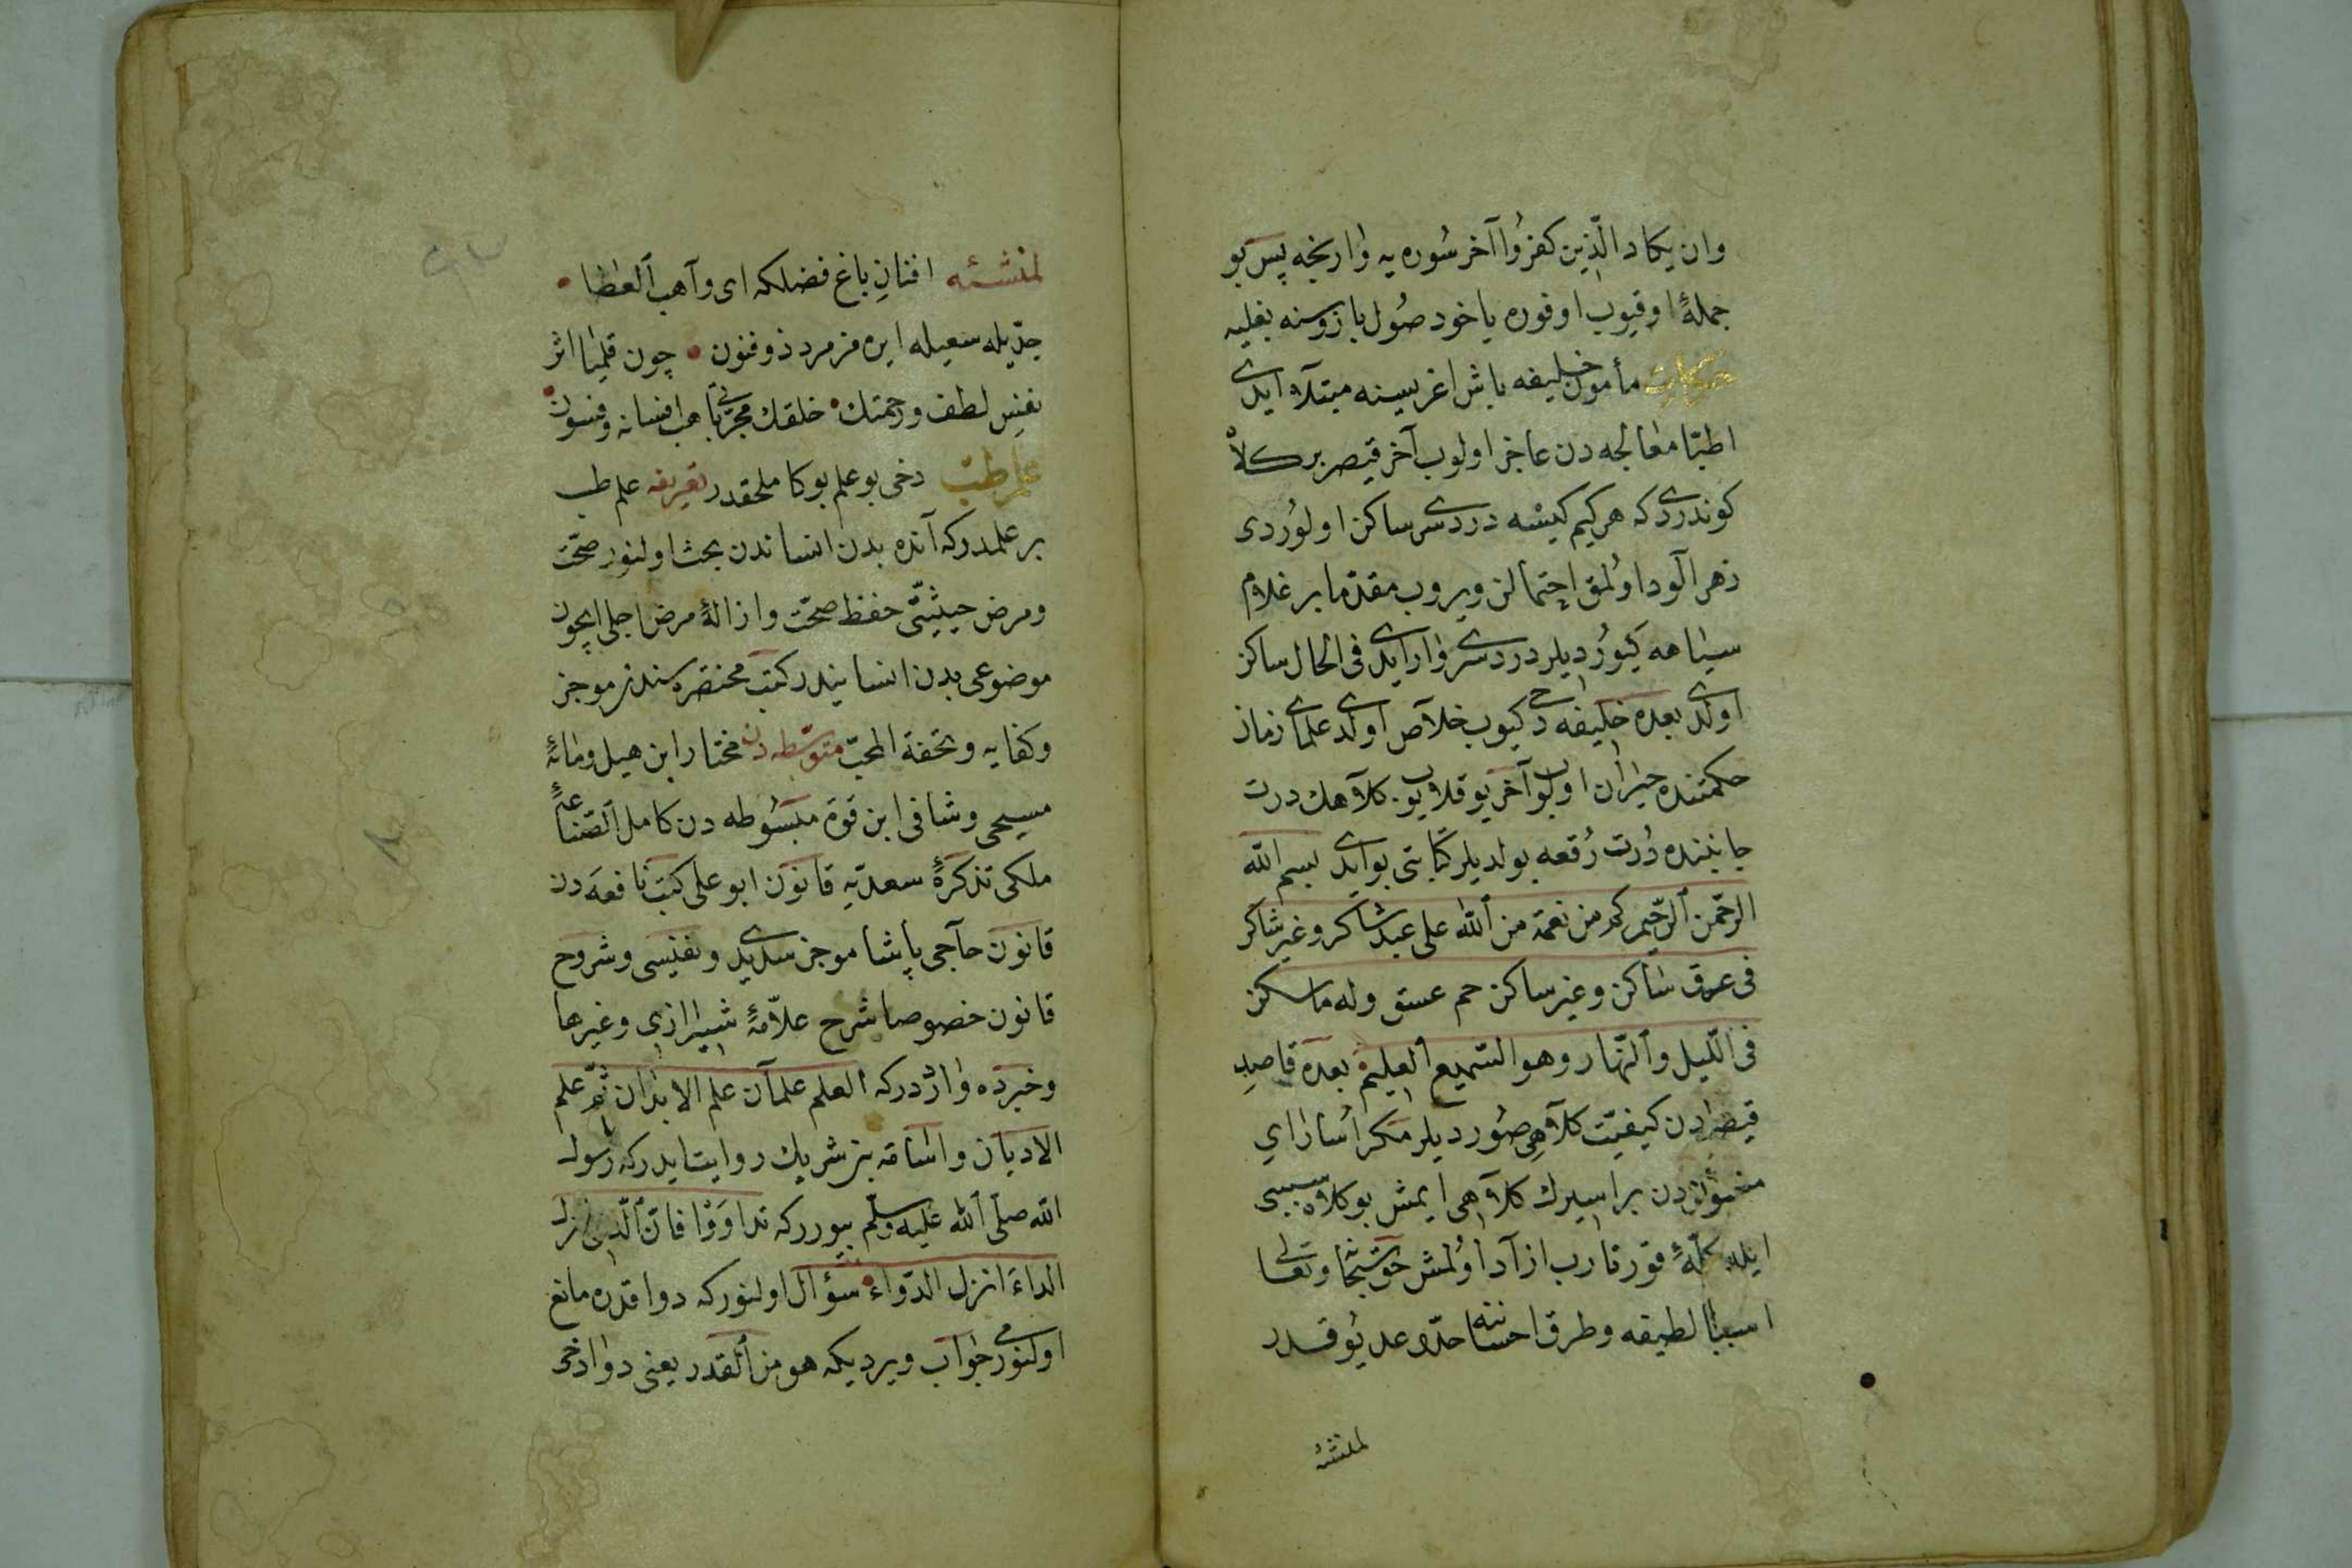 وان يكاد الّذين كفرُوا آخر سُوره يه وارنجه پس بو
جملهٔ اوقيوب اوفوره ياخود صُول بازوسنه بغليه
حكايت مأمون خليفه باش اغريسينه مبتلا ايدى
اطبّا معالجه دن عاجز اولوب آخر قيصر بر كلاه
كوندردى كه هر كيم كيسه دردسرى ساكن اولوردى
زهر آلود اولمق احتمالن ويروب مقدّما بر غلام
سياهه كيوُرديلر دردسرى وار ايدى فى الحال ساكن
اولدى بعده خليفه دخى كيوب خلاص اولدى علماى زمان
حكمتنده حيران اولوب آخر يوقلايوب كلاهك درت
جانبنده دُرت رُقعه بولديلر كتابتى بو ايدى بسم الله
الرحمن الرحيم كم من نعمة من الله على عبد شاكر وغير شاكر
فى عرق ساكن وغير ساكن حم عسق وله ما سكن
فى الّليل والنّهار وهو السّميع العليم بعده قاصدِ
قيصردن كيفيّت كلاهى صُورديلر مكر اُساراى
دن بر اسيرك كلاهى ايمش بو كلاه سببى
ايله قورتارب ازاد اولمش حق سبحانه وتعالى
اسباب لطيفه وطرق احساننه حدّ وعد يُوقدر
لمنشئه
لمنشئه افنانِ باغ فضلكه اى واهب العطا
جدّيله سعيله ايره مز مرد ذو فنون چون قليا اثر
نفسِ لطف ورحمتك خلقك مجرّباتى هب افسانه وفسون
علم طبّ دخى بو علم بوكا ملحقدر تعريفه علم طب
بر علمدر كه آنده بدن انساندن بحث اولنور صحّت
ومرض حيثيتى حفظ صحّت وازالهٔ مرض اجلى ايچون
موضوعى بدن انسانيدر كتب مختصره سندن موجز
وكفايه وتحفة المحبّ متوسّطه دن مختار ابن هبل ومائهٔ
مسيحى وشافى ابن قوة مبسُوطه دن كامل الصّناعهٔ
ملكى تذكرهٔ سعديّه قانون ابو على كتب نافعه دن
قانون حاجى پاشا موجز سديدى ونفيسى وشروح
قانون خصوصا شرح علاّمهٔ شيرازى وغيرها
وخبرده واردر كه العلم علمان علم الابدان ثمّ علم
الاديان واسامه بن شريك روايت ايدر كه رسول
الله صلّى الله عليه وسلّم بيورر كه تداوَوْا فانّ الّذى انزل
الداءَ انزل الدّواء سؤال اولنور كه دوا قدره مانع
اولنورمى جواب ويرديكه هو من القدر يعنى دوا دخى